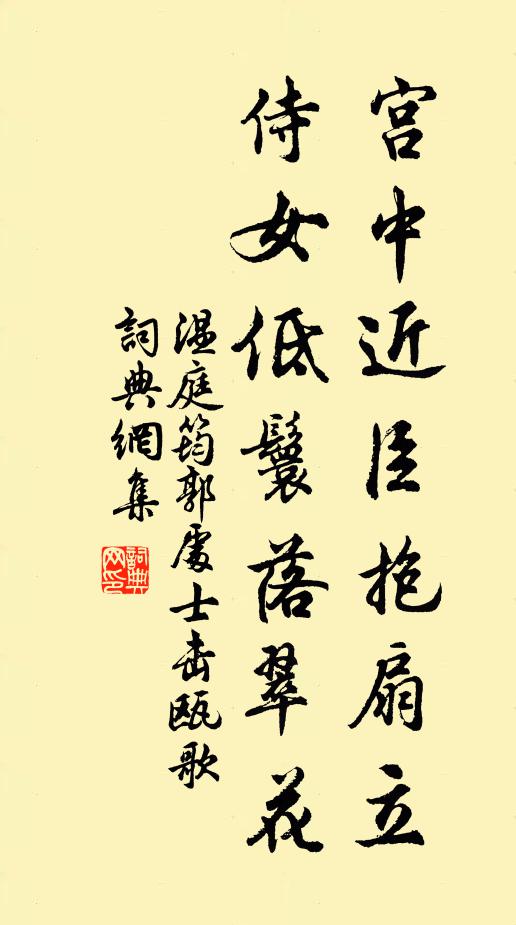 宮中近臣抱扇立
侍女低鬟落翠花
温庭筠郭處士击甌歌
詞典網集
詞典网印